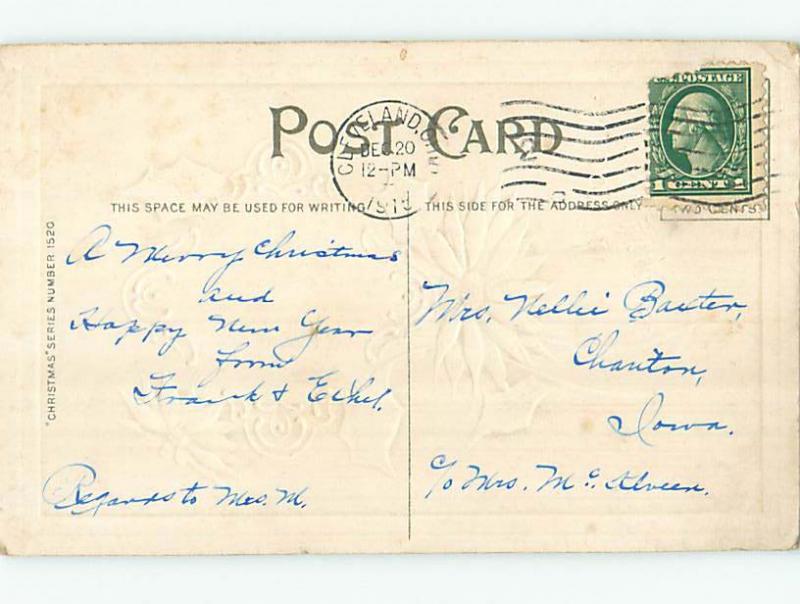 POST CARD
CLEVELAND, OHIO
DEC 20
12-PM
U.S. POSTAGE
1 CENT 1
TWO CENTS
THIS SPACE MAY BE USED FOR WRITING
THIS SIDE FOR THE ADDRESS ONLY
"CHRISTMAS" SERIES NUMBER 1520
A Merry Christmas
and
Happy New Year
from
Frank & Ethel.
Regards to Mrs. M.
Mrs. Nellie Baxter,
Chariton,
Iowa.
c/o Mrs. Mc. Klveen.